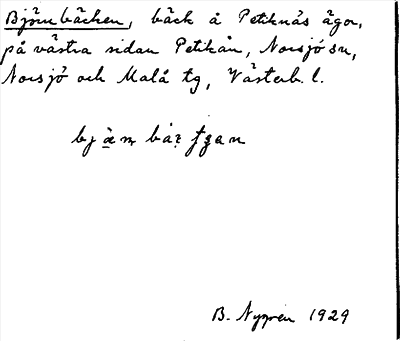 Björnbäcken, bäck å Petiknäs ägor,
på västra sidan Petikån, Norsjö sn,
Norsjö och Malå tg, Västerb. l.
B. Nygren 1929